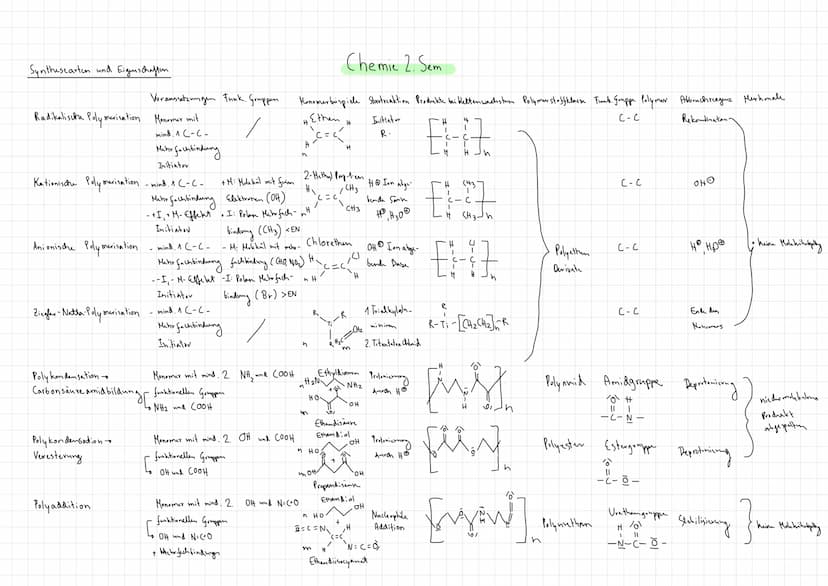 Chemie 2. Sem
Synthesearten und Eigenschaften
Voraussetzungen Funk. Gruppen Monomerbeispiele Startreaktion Produkte bei Kettenwachstum Polymerstoffklasse Funk. Gruppe Polymer Abbruchreagenz Merkmale
Radikalische Polymerisation
Monomer mit
mind. 1 C-C-
Mehrfachbindung
Initiator
Ethen
Initiator
R·
C-C
Rekombination
Kationische Polymerisation
- mind. 1 C-C-
Mehrfachbindung
- +I, +M-Effekt
Initiator
+M: Molekül mit freien
Elektronen (OH)
+I: Polare Mehrfach-
bindung (CH3) <EN
2-Methyl Prop-1-en
H⊕ Ion abge-
bende Säure
H⊕, H3O⊕
C-C
OH⊖
Anionische Polymerisation
- mind. 1 C-C-
Mehrfachbindung
- -I, -M-Effekt
Initiator
-M: Molekül mit
-I: Polare Mehrfach-
bindung (Br) >EN
Chlorethen
OH⊖ Ion abge-
bende Base
C-C
Polyethen
Derivate
Ziegler-Natta-Polymerisation
- mind. 1 C-C-
Mehrfachbindung
Initiator
2. Titantetrachlorid
R-Ti-[CH2CH2]n-R
C-C
Ende des
Monomers
Polykondensation →
Carbonsäureamidbildung
Monomer mit mind. 2
funktionellen Gruppen
↳ NH2 und COOH
NH2 und COOH
Ethyldiamin
Ethandisäure
Protonierung
durch H⊕
Polyamid
Amidgruppe
Deprotonierung
Polykondensation →
Veresterung
Monomer mit mind. 2
funktionellen Gruppen
↳ OH und COOH
OH und COOH
Ethandiol
Propandisäure
Protonierung
durch H⊕
Polyester
Estergruppe
Deprotonierung
niedermolekulares
Produkt
abgespalten
Polyaddition
Monomer mit mind. 2
funktionellen Gruppen
↳ OH und N=C=O
+ Mehrfachbindungen
OH und N=C=O
Ethandiol
Ethandiisocyanat
Nucleophile
Addition
Polyurethan
Urethangruppe
Stabilisierung